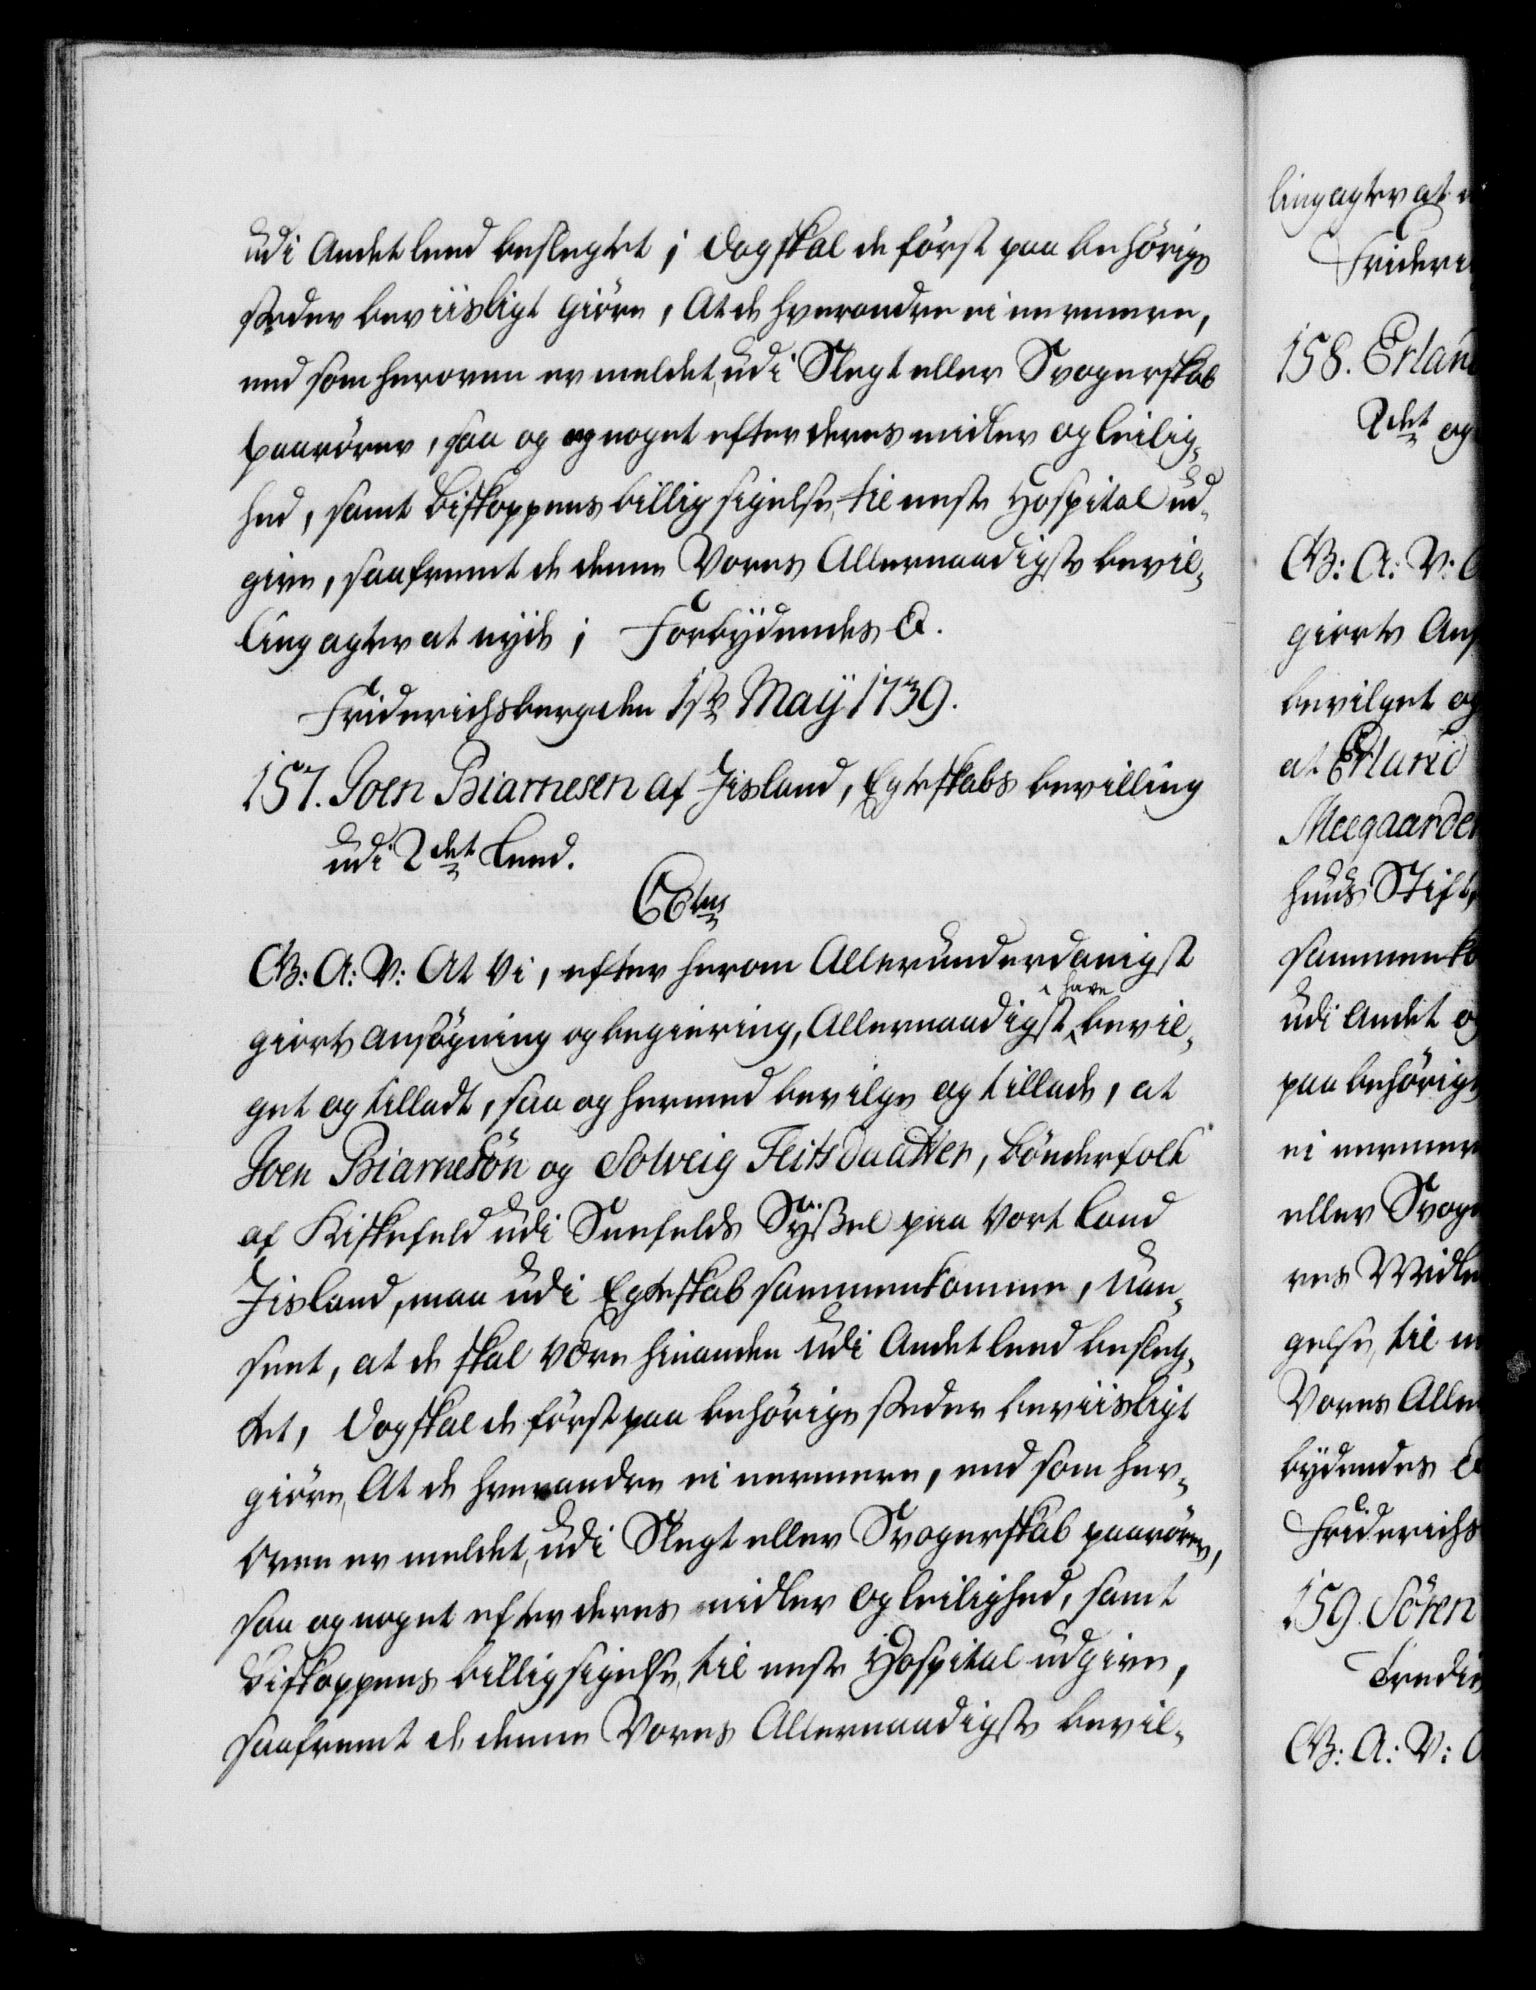 udi Andet leed beslegtet; dog skal de först paa behörige
steder beviisligt giöre, At de hverandre ei nermere,
end som heroven er meldet, udi Slegt eller Svogerskab
paarörer, saa og og noget efter deres midler og leilig-
hed, samt Biskoppens billig sigelse, til neste Hospital ud-
give, saafremt de denne Vores Allernaadigste bevil-
ling agter at nyde; Forbydendes &.
Friderichsberg den 1ste Maÿ 1739.
157. Joen Biarnesen af Jisland, Egteskabs bevilling
udi 2det Leed.
C6tus
G: A: V: At Vi, efter herom Allerunderdanigst
giorte ansögning og begiering, Allernaadigst have bevil-
get og tilladt, saa og hermed bevilge og tillade, at
Joen Biarnesön og Solveig Teitsdaatter, bönderfolk
af Kiskefeld udi Snefelds Sÿssel paa Vort land
Jisland, maa udi Egteskab sammenkomme, Uan-
seet, at de skal være hinanden udi Andet leed besleg-
tet, dog skal de först paa behörige steder beviisligt
giöre, At de hverandre ei nermere, end som her-
oven er meldet, udi Slegt eller Svogerskab paarörer,
saa og noget efter deres midler og leilighed, samt
Biskoppens billig sigelse, til neste Hospital udgive,
saafremt de denne Vores Allernaadigste bevil-
ling agter at
Frideri
158. Erlan
2det og
G: A: V:
giorte Ans
bevilget og
at Erland
Meegaarde
huus Stift,
sammenko
udi Andet o
paa behörige
ei nermere
eller Svog
res Midle
gelse, til n
Vores Alle
bydendes &
Friderichs
159. Sören
Tredie
G: A: V: